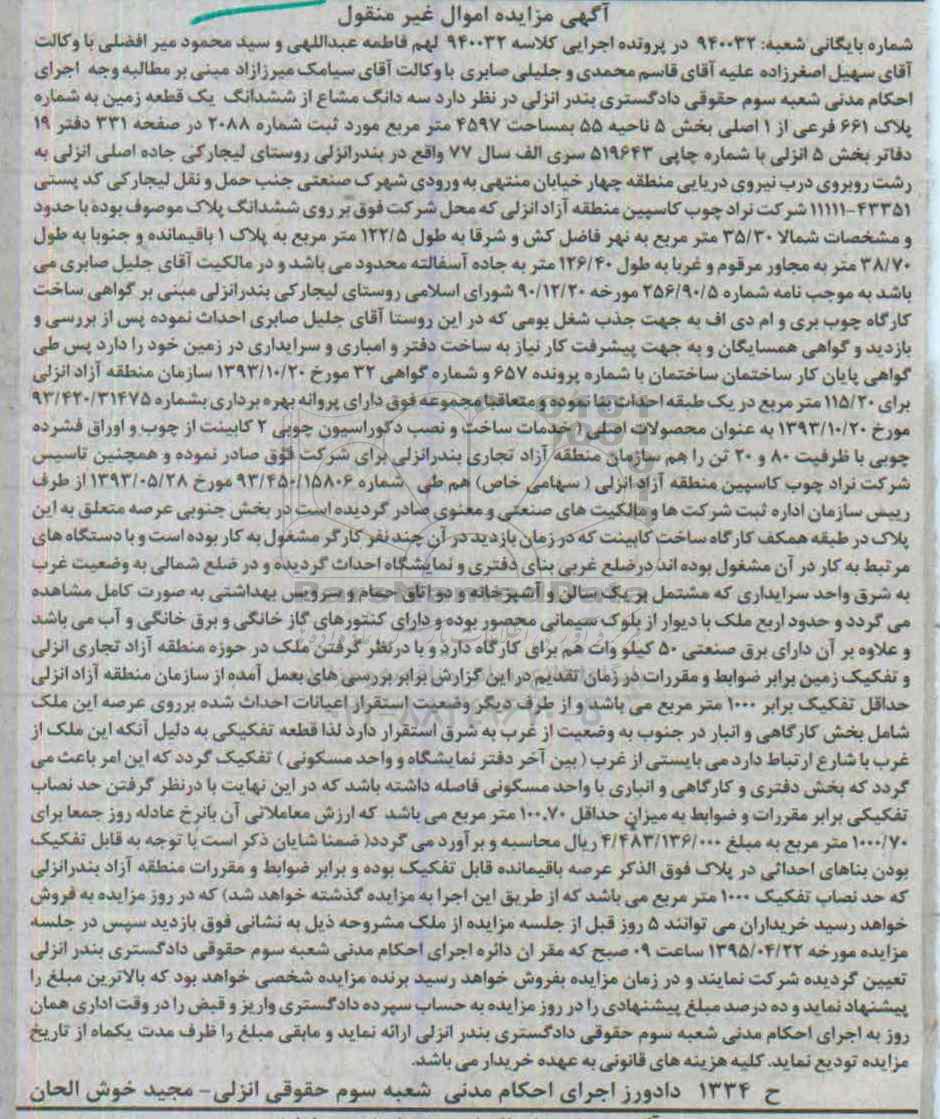 آگهی مزایده اموال غیر منقول
شماره بایگانی شعبه: ۹۴۰۰۳۲ در پرونده اجرایی کلاسه ۹۴۰۰۳۲ لهم فاطمه عبداللهی و سید محمود میر افضلی با وکالت
آقای سهیل اصغرزاده علیه آقای قاسم محمدی و جلیلی صابری با وکالت آقای سیامک میرزازاد مبنی بر مطالبه وجه اجرای
احکام مدنی شعبه سوم حقوقی دادگستری بندر انزلی در نظر دارد سه دانگ مشاع از ششدانگ یک قطعه زمین به شماره
پلاک ۶۶۱ فرعی از ۱ اصلی بخش ۵ ناحیه ۵۵ بمساحت ۴۵۹۷ متر مربع مورد ثبت شماره ۲۰۸۸ در صفحه ۳۳۱ دفتر ۱۹
دفاتر بخش ۵ انزلی با شماره چاپی ۵۱۹۶۴۳ سری الف سال ۷۷ واقع در بندرانزلی روستای لیجارکی جاده اصلی انزلی به
رشت روبروی درب نیروی دریایی منطقه چهار خیابان منتهی به ورودی شهرک صنعتی جنب حمل و نقل لیجارکی کد پستی
۴۳۳۵۱-۱۱۱۱۱ شرکت نراد چوب کاسپین منطقه آزاد انزلی که محل شرکت فوق بر روی ششدانگ پلاک موصوف بوده با حدود
و مشخصات شمالا ۳۵/۳۰ متر مربع به نهر فاضل کش و شرقا به طول ۱۲۲/۵ متر مربع به پلاک ۱ باقیمانده و جنوبا به طول
۳۸/۷۰ متر به مجاور مرقوم و غربا به طول ۱۲۶/۴۰ متر به جاده آسفالته محدود می باشد و در مالکیت آقای جلیل صابری می
باشد به موجب نامه شماره ۲۵۶/۹۰/۵ مورخه ۹۰/۱۲/۲۰ شورای اسلامی روستای لیجارکی بندرانزلی مبنی بر گواهی ساخت
کارگاه چوب بری و ام دی اف به جهت جذب شغل بومی که در این روستا آقای جلیل صابری احداث نموده پس از بررسی و
بازدید و گواهی همسایگان و به جهت پیشرفت کار نیاز به ساخت دفتر و امباری و سرایداری در زمین خود را دارد پس طی
گواهی پایان کار ساختمان ساختمان با شماره پرونده ۶۵۷ و شماره گواهی ۳۲ مورخ ۱۳۹۳/۱۰/۲۰ سازمان منطقه آزاد انزلی
برای ۱۱۵/۲۰ متر مربع در یک طبقه احداث بنا نموده و متعاقبا مجموعه فوق دارای پروانه بهره برداری بشماره ۹۳/۴۲۰/۳۱۴۷۵
مورخ ۱۳۹۳/۱۰/۲۰ به عنوان محصولات اصلی ( خدمات ساخت و نصب دکوراسیون چوبی ۲ کابینت از چوب و اوراق فشرده
چوبی با ظرفیت ۸۰ و ۲۰ تن را هم سازمان منطقه آزاد تجاری بندرانزلی برای شرکت فوق صادر نموده و همچنین تاسیس
شرکت نراد چوب کاسپین منطقه آزاد انزلی ( سهامی خاص) هم طی شماره ۹۳/۴۵۰/۱۵۸۰۶ مورخ ۱۳۹۳/۰۵/۲۸ از طرف
رییس سازمان اداره ثبت شرکت ها و مالکیت های صنعتی و معنوی صادر گردیده است در بخش جنوبی عرصه متعلق به این
پلاک در طبقه همکف کارگاه ساخت کابینت که در زمان بازدید در آن چند نفر کارگر مشغول به کار بوده است و با دستگاه های
مرتبط به کار در آن مشغول بوده اند درضلع غربی بنای دفتری و نمایشگاه احداث گردیده و در ضلع شمالی به وضعیت غرب
به شرق واحد سرایداری که مشتمل بر یک سالن و آشپزخانه و دو اتاق حمام و سرویس بهداشتی به صورت کامل مشاهده
می گردد و حدود اربع ملک با دیوار از بلوک سیمانی محصور بوده و دارای کنتورهای گاز خانگی و برق خانگی و آب می باشد
و علاوه بر آن دارای برق صنعتی ۵۰ کیلو وات هم برای کارگاه دارد و با درنظر گرفتن ملک در حوزه منطقه آزاد تجاری انزلی
و تفکیک زمین برابر ضوابط و مقررات در زمان تقدیم در این گزارش برابر بررسی های بعمل آمده از سازمان منطقه آزاد انزلی
حداقل تفکیک برابر ۱۰۰۰ متر مربع می باشد و از طرف دیگر وضعیت استقرار اعیانات احداث شده برروی عرصه این ملک
شامل بخش کارگاهی و انبار در جنوب به وضعیت از غرب به شرق استقرار دارد لذا قطعه تفکیکی به دلیل آنکه این ملک از
غرب با شارع ارتباط دارد می بایستی از غرب ( بین آخر دفتر نمایشگاه و واحد مسکونی ) تفکیک گردد که این امر باعث می
گردد که بخش دفتری و کارگاهی و انباری با واحد مسکونی فاصله داشته باشد که در این نهایت با درنظر گرفتن حد نصاب
تفکیکی برابر مقررات و ضوابط به میزان حداقل ۱۰۰.۷۰ متر مربع می باشد که ارزش معاملاتی آن بانرخ عادله روز جمعا برای
۱۰۰۰/۷۰ متر مربع به مبلغ ۴/۴۸۳/۱۳۶/۰۰۰ ریال محاسبه و برآورد می گردد( ضمنا شایان ذکر است با توجه به قابل تفکیک
بودن بناهای احداثی در پلاک فوق الذکر عرصه باقیمانده قابل تفکیک بوده و برابر ضوابط و مقررات منطقه آزاد بندرانزلی
که حد نصاب تفکیک ۱۰۰۰ متر مربع می باشد که از طریق این اجرا به مزایده گذشته خواهد شد) که در روز مزایده به فروش
خواهد رسید خریداران می توانند ۵ روز قبل از جلسه مزایده از ملک مشروحه ذیل به نشانی فوق بازدید سپس در جلسه
مزایده مورخه ۱۳۹۵/۰۴/۲۲ ساعت ۰۹ صبح که مقر ان دائره اجرای احکام مدنی شعبه سوم حقوقی دادگستری بندر انزلی
تعیین گردیده شرکت نمایند و در زمان مزایده بفروش خواهد رسید برنده مزایده شخصی خواهد بود که بالاترین مبلغ را
پیشنهاد نماید و ده درصد مبلغ پیشنهادی را در روز مزایده به حساب سپرده دادگستری واریز و قبض را در وقت اداری همان
روز به اجرای احکام مدنی شعبه سوم حقوقی دادگستری بندر انزلی ارائه نماید و مابقی مبلغ را ظرف مدت یکماه از تاریخ
مزایده تودیع نماید. کلیه هزینه های قانونی به عهده خریدار می باشد.
ح ۱۳۳۴ دادورز اجرای احکام مدنی شعبه سوم حقوقی انزلی- مجید خوش الحان